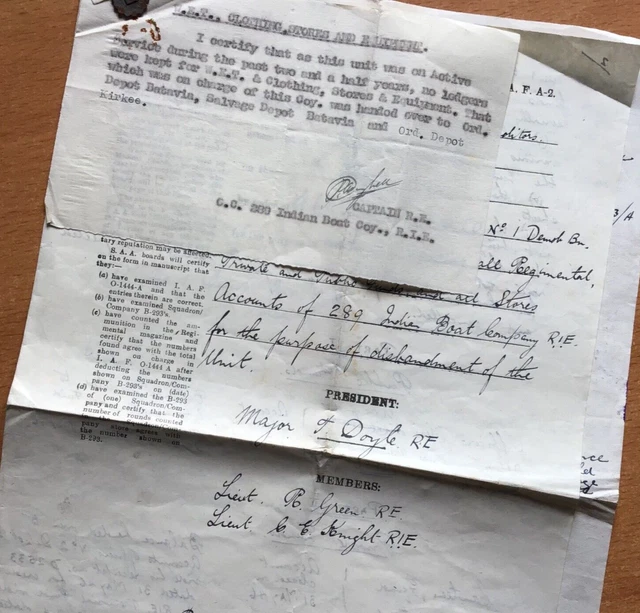 CLOTHING, STORES AND EQUIPMENT.
I certify that as this unit was on Active
Service during the past two and a half years, no ledgers
were kept for W.E.T. & Clothing, Stores & Equipment. That
which was on charge of this Coy. was handed over to Ord.
Depot Batavia, Salvage Depot Batavia and Ord. Depot
Kirkee.
CAPTAIN R.E.
O.C. 289 Indian Boat Coy., R.I.E.
A. F. A-2.
Nº 1 Demob Bn.
3/A
tary reputation may be affected.
S.A.A. boards will certify
on the form in manuscript that
they:—
(a) have examined I. A. F.
O-1444-A and that the
entries therein are correct.
(b) have examined Squadron/
Company B-293's.
(c) have counted the am-
munition in the Regi-
mental magazine and
certify that the numbers
found agree with the total
shown on charge in
I. A. F. O-1444 A after
deducting the numbers
shown on Squadron/Com-
pany B-293's on (date)
(d) have examined the B-293
of (one) Squadron/Com-
pany and certify that the
number of rounds counted
the number shown on
B-293.
all Regimental,
Private and Public and Stores
Accounts of 289 Indian Boat Company R.I.E.
for the purpose of disbandment of the
Unit.
PRESIDENT:
Major F Doyle RE
MEMBERS:
Lieut. R. Green RE.
Lieut. C. E. Knight R.I.E.